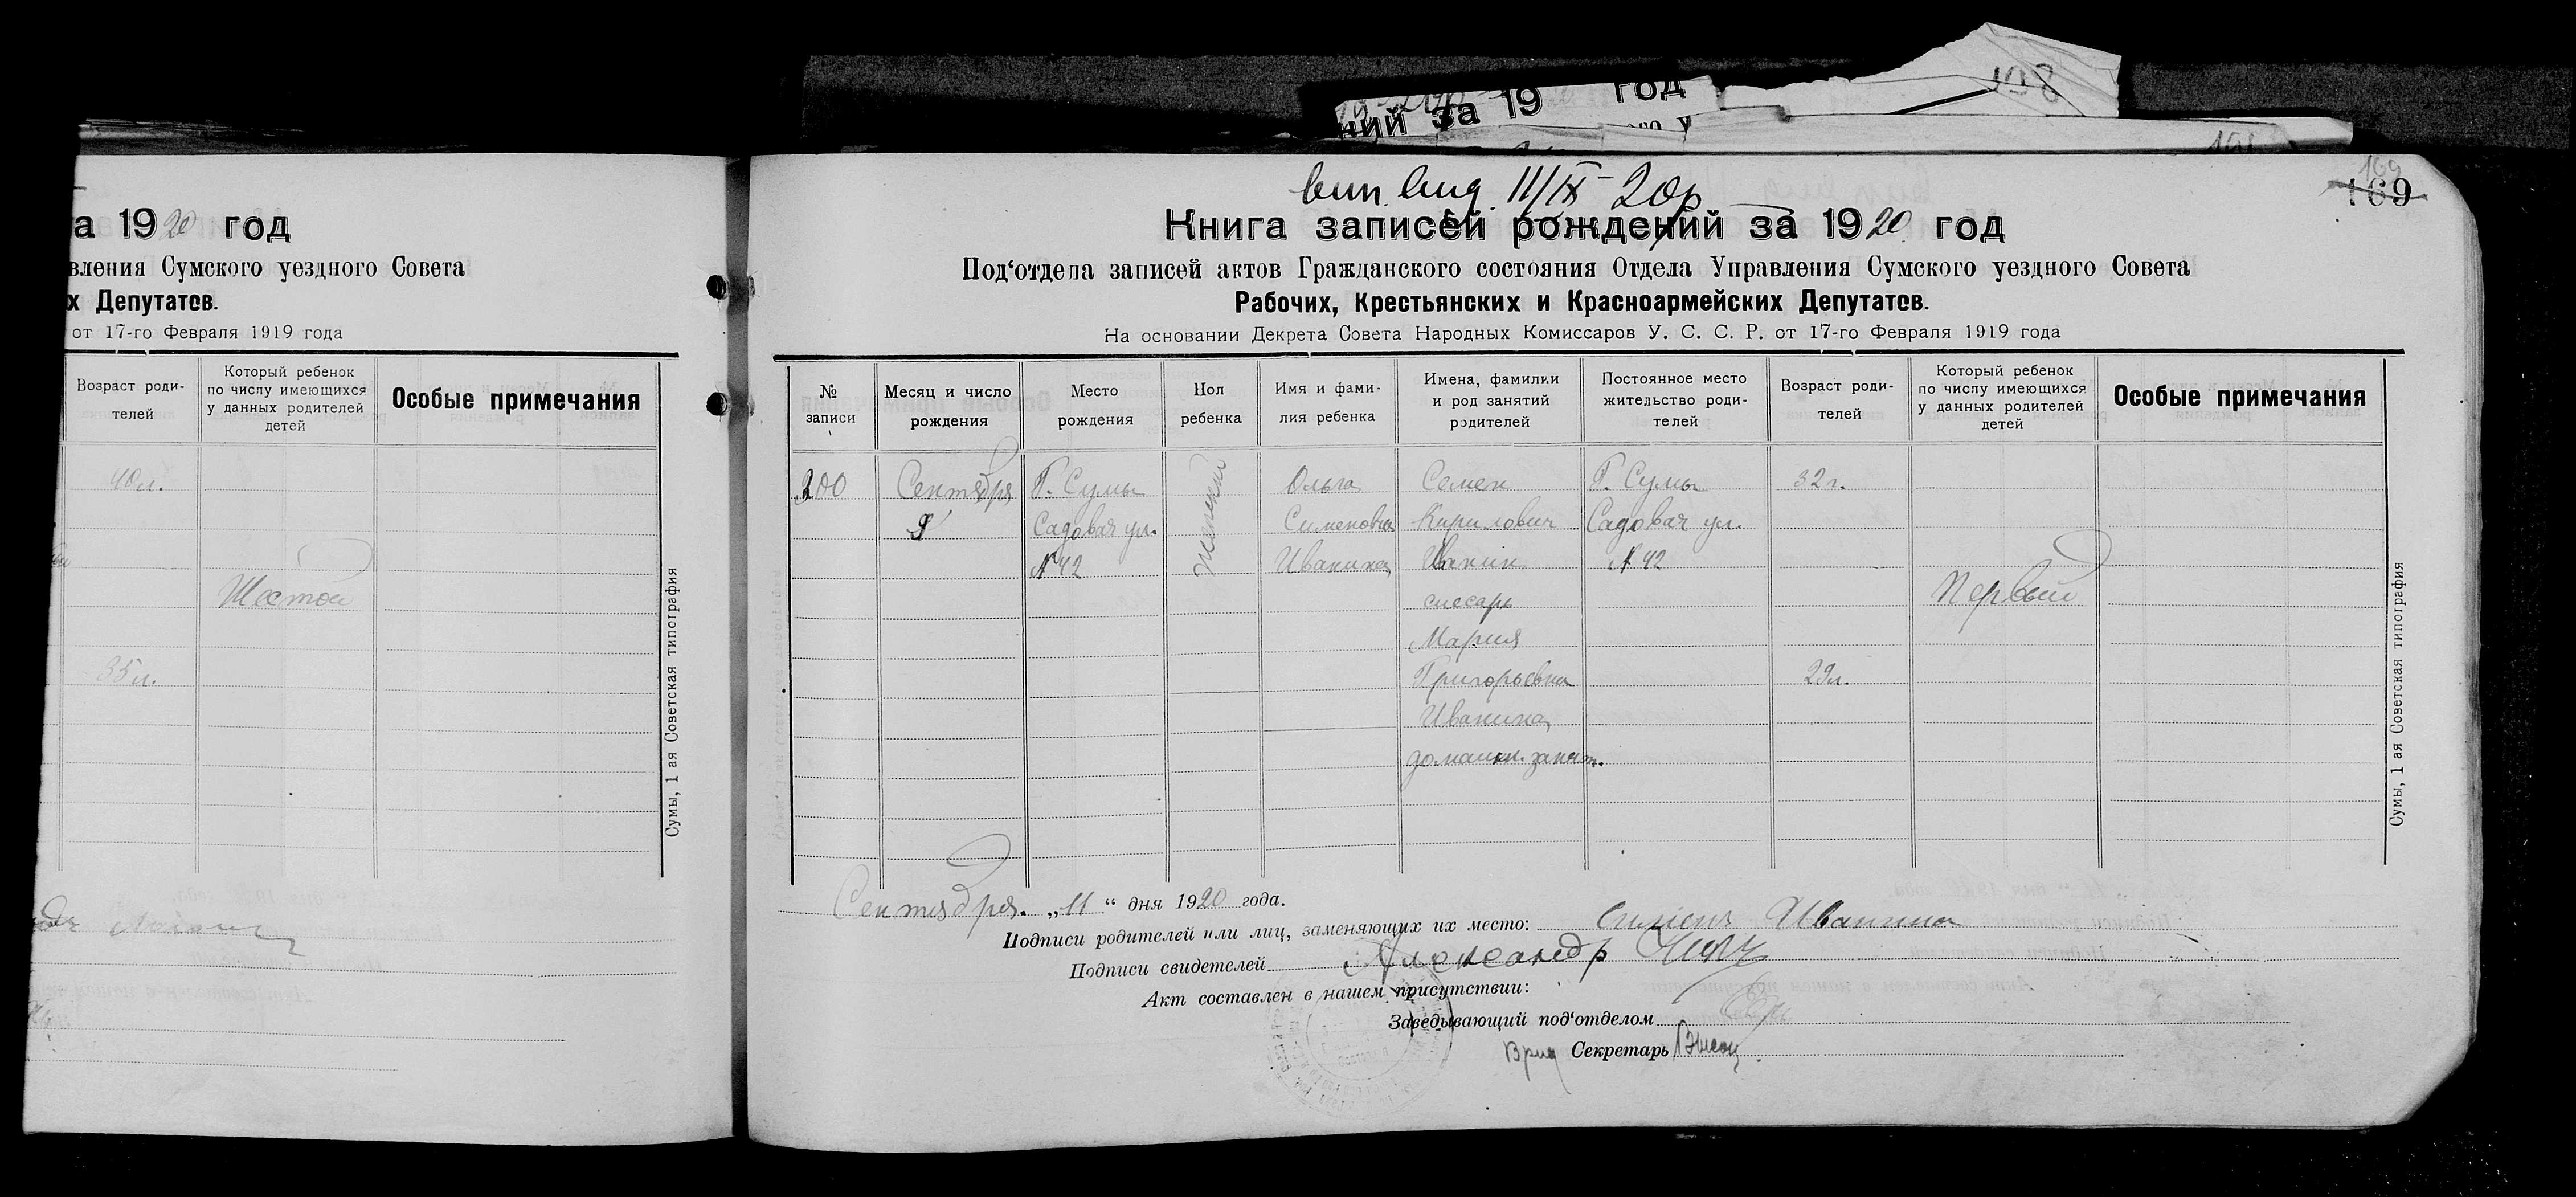 ний за 19 год
198
а 1920 год
вления Сумского уездного Совета
х Депутатов.
от 17-го Февраля 1919 года
Возраст роди-
телей
Который ребенок
по числу имеющихся
у данных родителей
детей
Особые примечания
40 л.
Шестой
35 л.
Сумы, 1 ая Советская типография
11/IX - 20р
169
169
Книга записей рождений за 1920 год
Под'отдела записей актов Гражданского состояния Отдела Управления Сумского уездного Совета
Рабочих, Крестьянских и Красноармейских Депутатов.
На основании Декрета Совета Народных Комиссаров У. С. С. Р. от 17-го Февраля 1919 года
№
записи
Месяц и число
рождения
Место
рождения
Пол
ребенка
Имя и фами-
лия ребенка
Имена, фамилии
и род занятий
родителей
Постоянное место
жительство роди-
телей
Возраст роди-
телей
Который ребенок
по числу имеющихся
у данных родителей
детей
Особые примечания
200
Сентября
Г. Сумы
Садовая ул.
№ 42
Женский
Ольга
Сименовна
Иванина
Семен
Кирилович
Иванин
слесарь
Мария
Григорьевна
Иванина
домашн. занят.
Г. Сумы
Садовая ул.
№ 42
32 г.
29 л.
Первый
Сумы, 1 ая Советская типография
Сентября „11“ дня 1920 года.
Подписи родителей или лиц, заменяющих их место: Симень Иванина
Подписи свидетелей Александр
Акт составлен в нашем присутствии:
Заведывающий под'отделом
Врид Секретарь